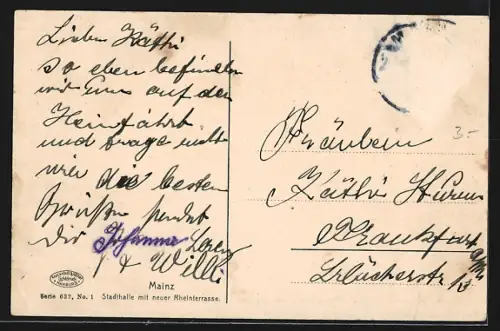 Lieben Käthi
so eben befinden
wir uns auf der
Heimfahrt
und
wir die besten
Grüße sendet
dir Johanna
& Willi
Mainz
Serie 637, No. 1 Stadthalle mit neuer Rheinterrasse.
Fräulein
Käthi
Frankfurt a/M
Blücherstr.
3-